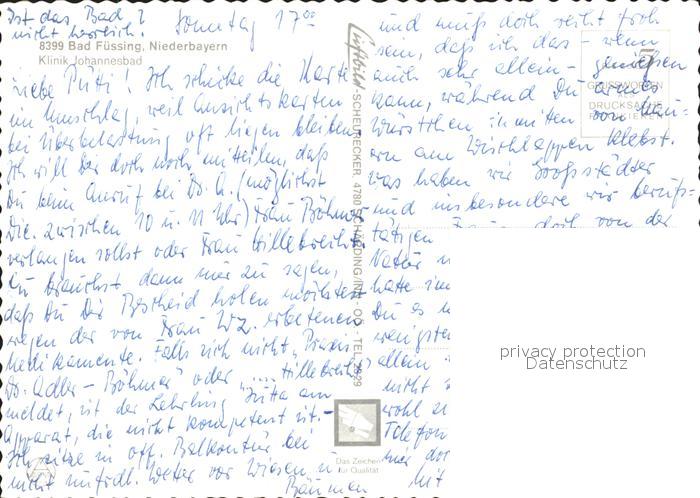 Ist das Bad ?
nicht herrlich!
Sonntag 17⁰⁰
8399 Bad Füssing, Niederbayern
Klinik Johannesbad
Liebe Putti! Ich schicke die Karte
im Umschlag, weil Ansichtskarten
bei Überbelastung oft liegen bleiben
Ich will Dir doch noch mitteilen, daß
Du beim Anruf bei Dr. A. (möglichst
Die. zwischen 10 u. 11 Uhr) Frau Böhmer
verlangen sollst oder Frau Hillebreiht
Du brauchst dann nur zu sagen,
daß Du Dir Bescheid holen möchtest
wegen der von Frau WZ. erbetenen
Medikamente. Falls sich nicht „Praxis
Dr. Adler - Böhmer" oder „... Hillebreiht"
meldet, ist der Lehrling Jutta am
Apparat, die nicht kompetent ist. -
Ich sitze in off. Balkontür bei
nicht unfrdl. Wetter vor Wiesen u.
Bäumen
und muß doch recht froh
sein, daß ich das - wenn
auch sehr allein - genießen
kann, während Du armes
Würstchen inmitten von
am Waschlappen klebst.
Was haben wir Großstädter
und insbesondere wir berufs-
tätigen
doch von der
Natur
hatte im
Du es
wenigste
allein
nicht
wohl
Telefon
mir dor
Mit
Luftbild-SCHEURECKER, 4780 SCHÄRDING/INN, OÖ. · TEL. 2629
DRUCKSACHE
Das Zeichen
für Qualität
privacy protection
Datenschutz